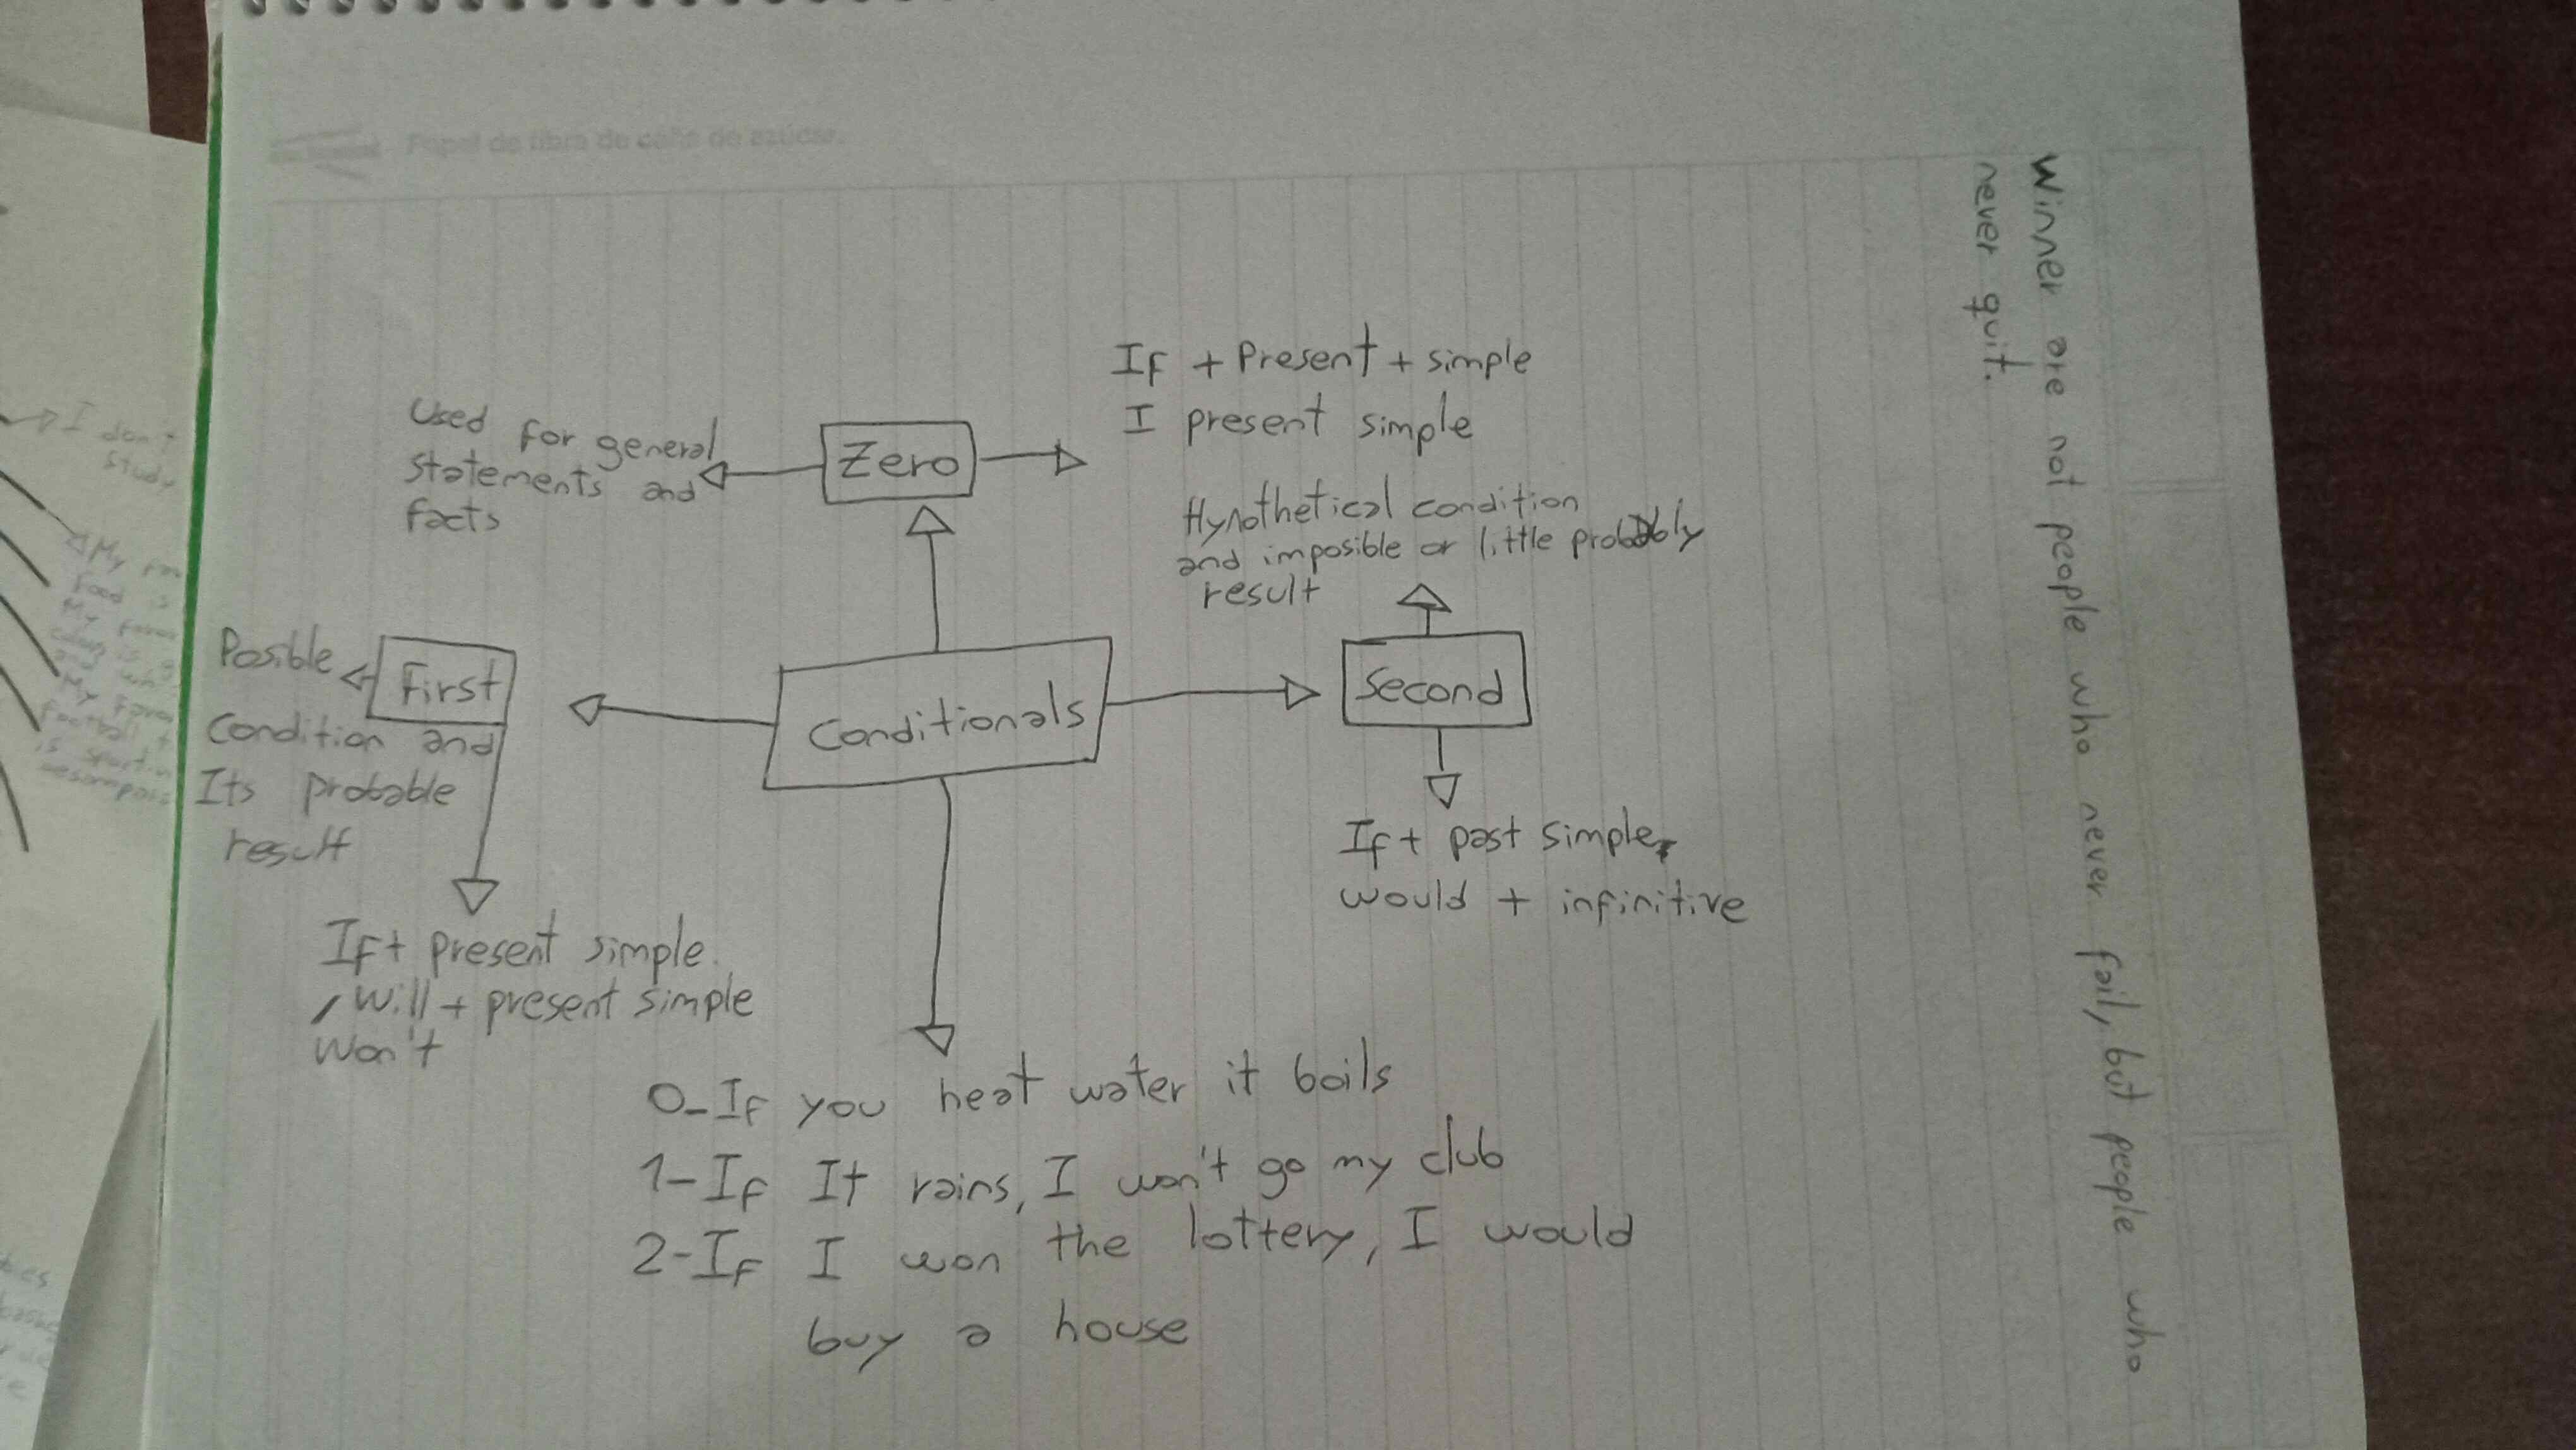 Papel de fibra de caña de azúcar.
Winner are not people who never fail, but people who
never quit.
If + Present + simple
I present simple
Used for general
statements and
facts
Zero
Hypothetical condition
and imposible or little probably
result
Posible
First
Condition and
Its probable
result
Conditionals
Second
If + past simple,
would + infinitive
If + present simple.
, will + present simple
won't
0-If you heat water it boils
1-If It rains, I won't go my club
2-If I won the lottery, I would
buy a house
I don't
study
My
food is
My
My
football
is